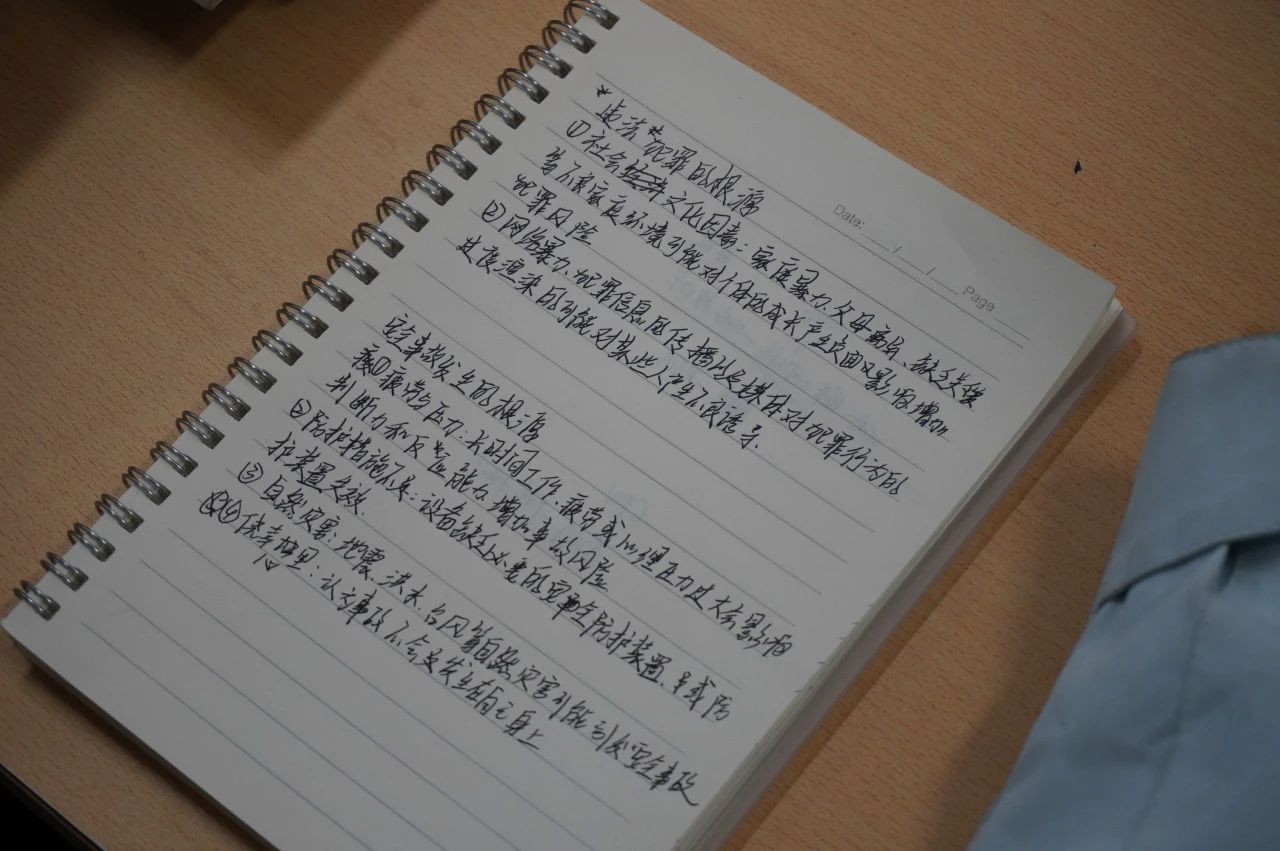 Date: / /
Page
违法犯罪的根源
①社会文化因素：家庭暴力、父母离异、缺乏关爱
等不良家庭环境可能对个体成长产生负面影响增加
犯罪风险
②网络暴力、犯罪信息的传播以及媒体对犯罪行为的
过度渲染都可能对某些人产生不良诱导
安全事故发生的根源
①疲劳与压力：长时间工作、疲劳或心理压力过大会影响
判断力和反应能力增加事故风险
②防护措施不足：设备缺乏必要的安全防护装置、或防
护装置失效
③自然灾害：地震、洪水、台风等自然灾害可能引发安全事故
④侥幸心里：认为事故不会发生在自己身上